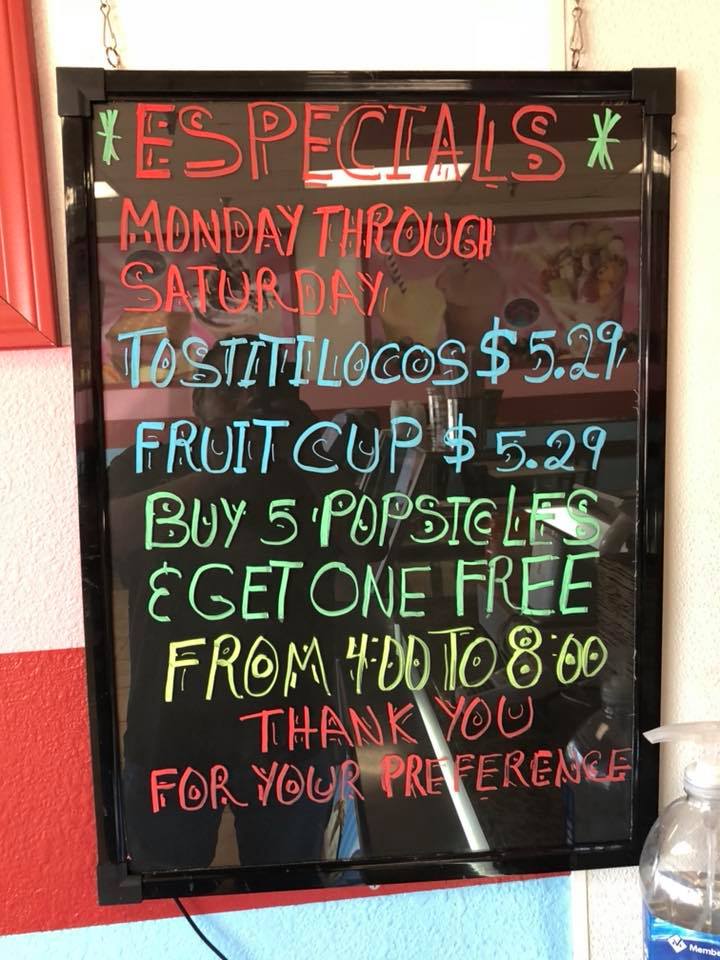 *ESPECIALS*
MONDAY THROUGH
SATURDAY
TOSTITILOCOS $5.29
FRUIT CUP $5.29
BUY 5 POPSICLES
& GET ONE FREE
FROM 4:00 TO 8:00
THANK YOU
FOR YOUR PREFERENCE